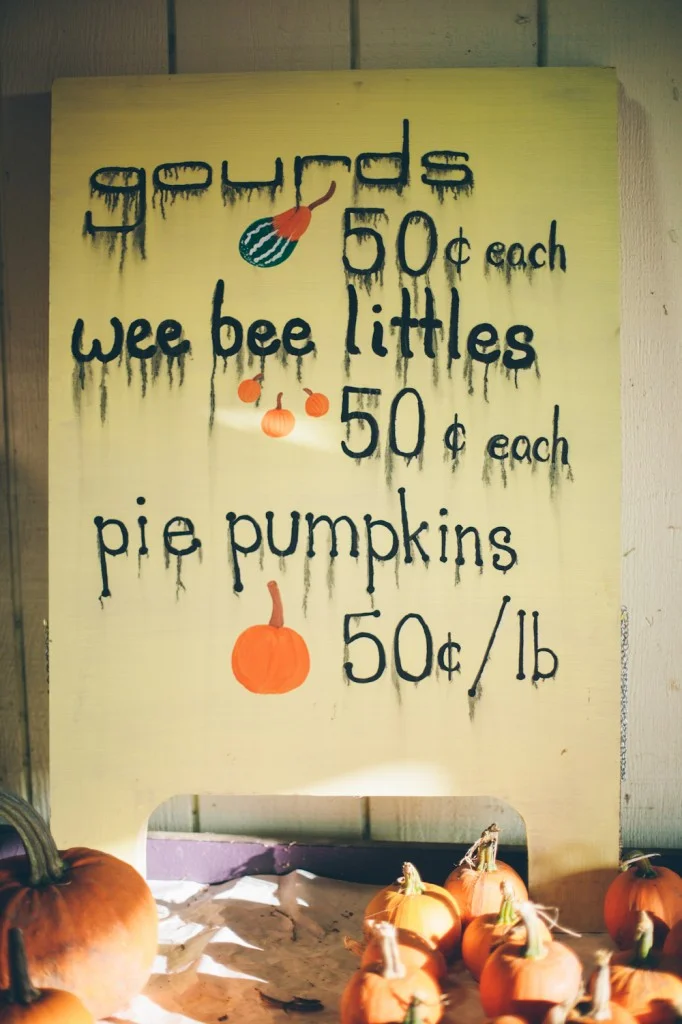 gourds
50¢ each
wee bee littles
50¢ each
pie pumpkins
50¢/lb